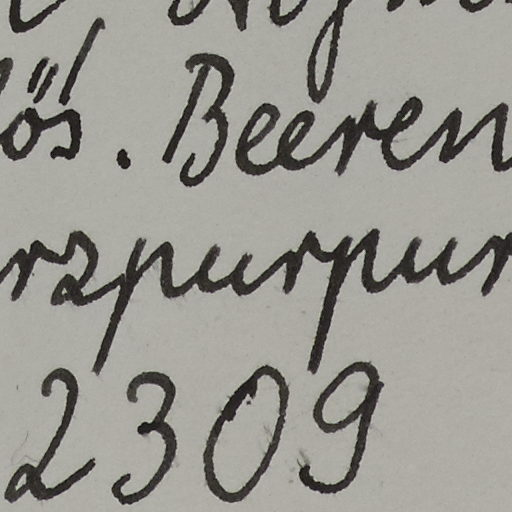 ös. Beeren
rzpurpur
2309